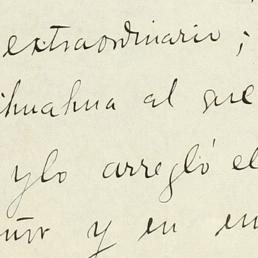 extraordinario;
ihuahua al que
ylo arregló el
y en en